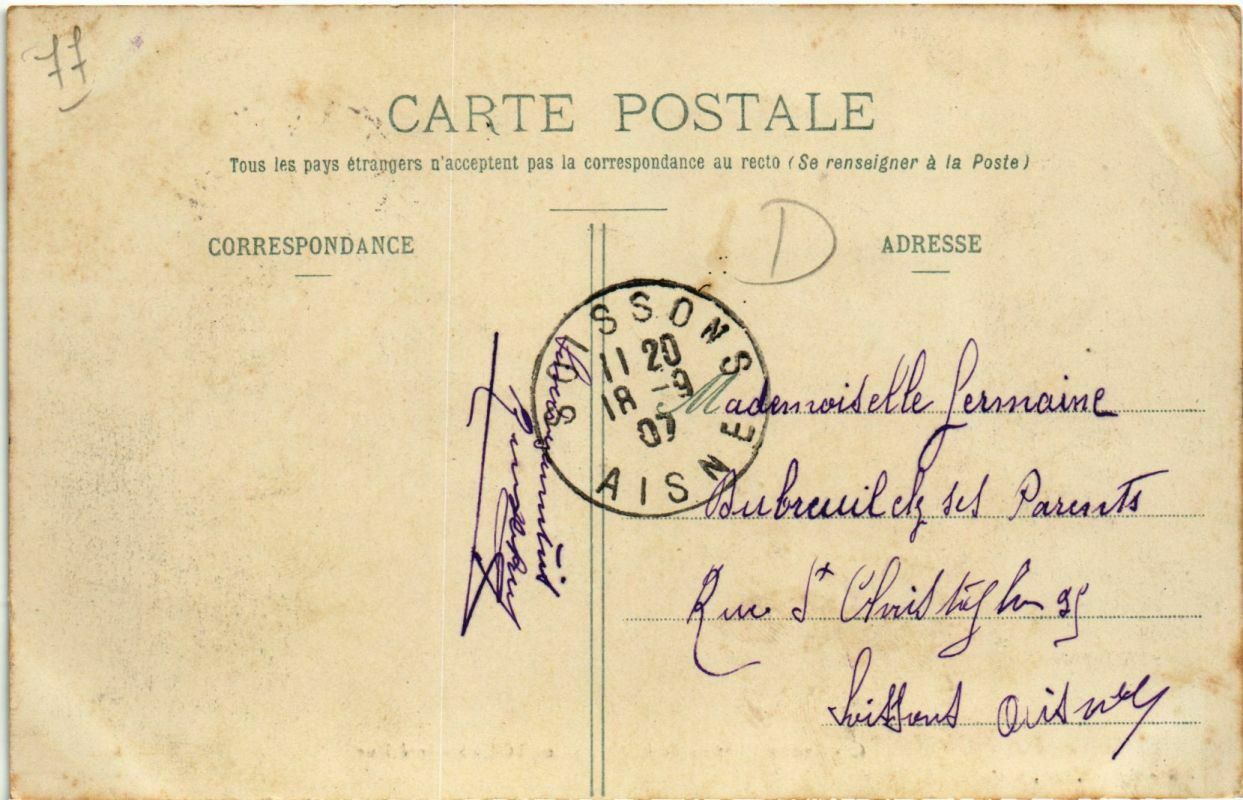 77
CARTE POSTALE
Tous les pays étrangers n'acceptent pas la correspondance au recto (Se renseigner à la Poste)
CORRESPONDANCE
ADRESSE
D
SOISSONS
11 20
18 -9
07
AISNE
Mademoiselle Germaine
Dubreuil chz ses Parents
Rue St Christophe 95
Soissons Aisne